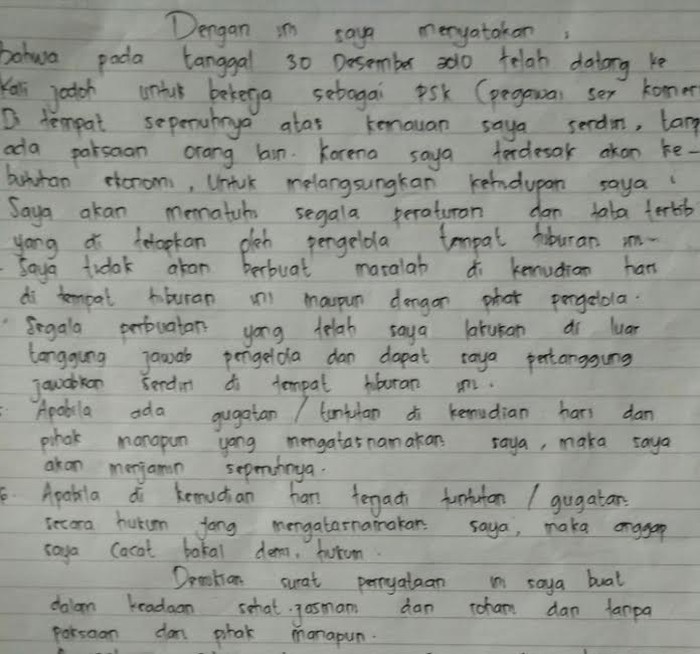 Dengan ini saya menyatakan,
bahwa pada tanggal 30 Desember 2010 telah datang ke
Kali jodoh untuk bekerja sebagai PSK (pegawai sex komer
Di tempat sepenuhnya atas kemauan saya sendiri, tanp
ada paksaan orang lain. Karena saya terdesak akan ke-
butuhan ekonomi, Untuk melangsungkan kehidupan saya :
Saya akan mematuhi segala peraturan dan tata tertib
yang di tetapkan oleh pengelola tempat hiburan ini-
Saya tidak akan berbuat masalah di kemudian hari
di tempat hiburan ini maupun dengan pihak pengelola.
Segala perbuatan yang telah saya lakukan di luar
tanggung jawab pengelola dan dapat saya pertanggung
jawabkan sendiri di tempat hiburan ini.
Apabila ada gugatan / tuntutan di kemudian hari dan
pihak manapun yang mengatasnamakan saya, maka saya
akan menjamin sepenuhnya.
6. Apabila di kemudian hari terjadi tuntutan / gugatan
secara hukum yang mengatasnamakan saya, maka anggap
saya cacat bakal demi, hukum.
Demikian surat pernyataan ini saya buat
dalam keadaan sehat jasmani dan rohani dan tanpa
paksaan dari pihak manapun.